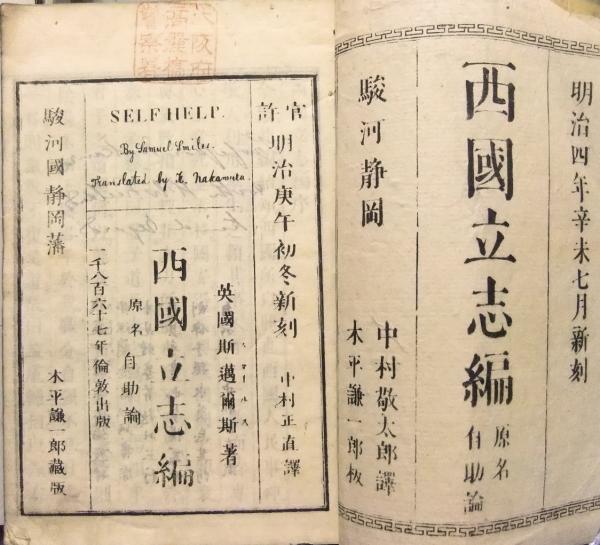 明治四年辛未七月新刻
西國立志編 原名 自助論
中村敬太郎譯
駿河静岡
木平謙一郎板
官許 明治庚午初冬新刻 中村正直譯
SELF HELP.
By Samuel Smiles.
Translated by K. Nakamura.
英國斯邁爾斯著
スマイルス
西國立志編
原名 自助論
一千八百六十七年倫敦出版
駿河國静岡藩
木平謙一郎藏版